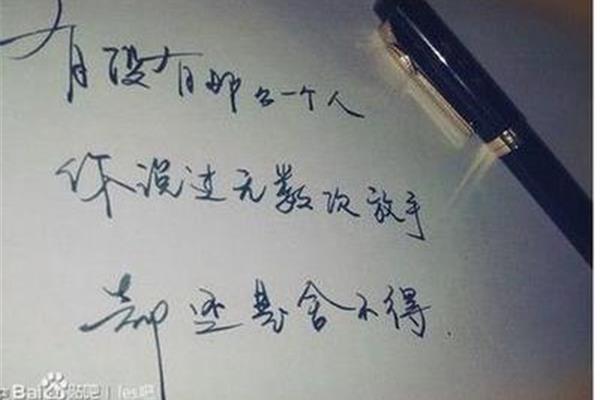 有没有那么一个人
你说过无数次放手
却还是舍不得.
Bai 贴吧 | les吧